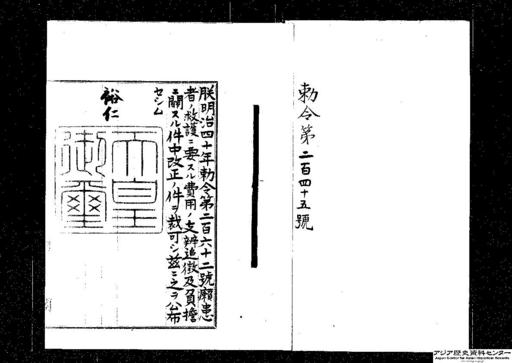 勅令第二百四十五號
朕明治四十年勅令第二百六十二號癩患
者ノ救護ニ要スル費用ノ支辨追徴及負擔
ニ關スル件中改正ノ件ヲ裁可シ茲ニ之ヲ公布
セシム
裕仁
天皇
御璽
アジア歴史資料センター
Japan Center for Asian Historical Records